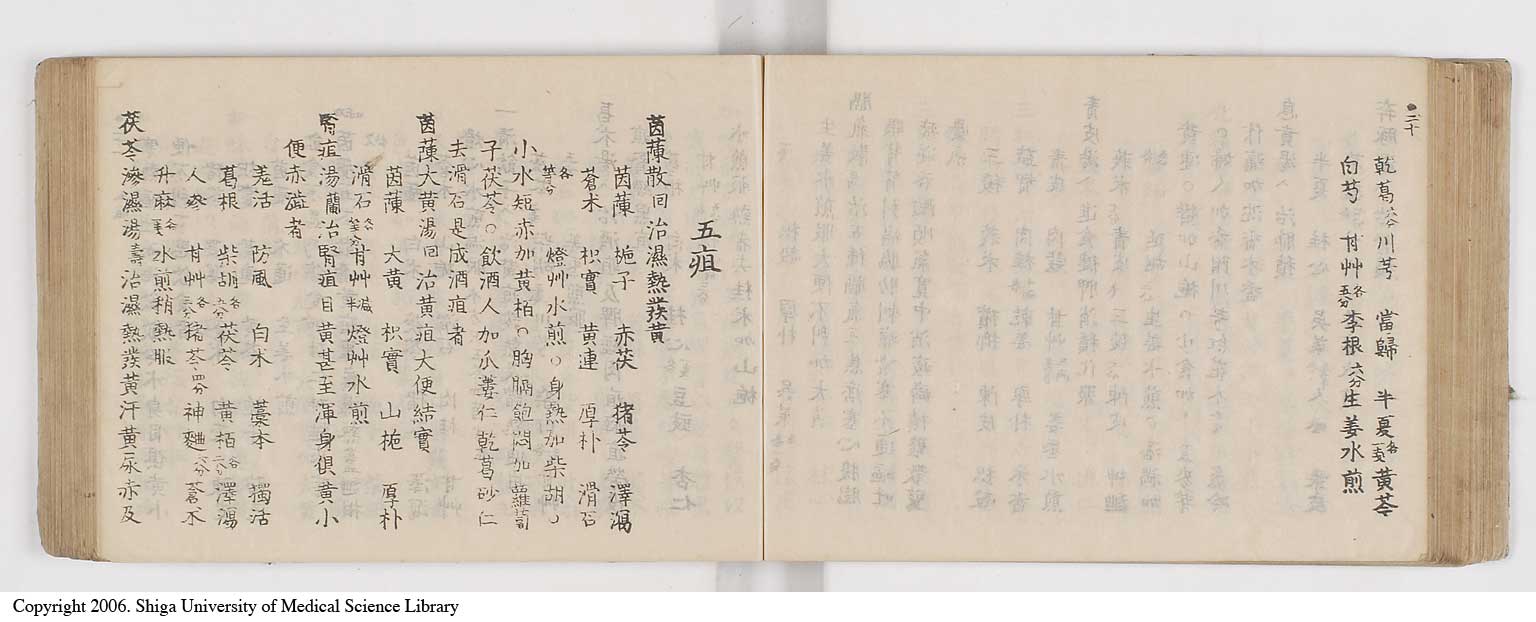 二十
乾葛六分川芎 當歸 半夏各一戔黄芩
白芍 甘艸各五分李根六分生姜水煎
五疸
茵蔯散回治濕熱發黄
茵蔯 梔子 赤茯 猪苓 澤瀉
蒼朮 枳實 黄連 厚朴 滑石
各等分 燈艸水煎○身熱加柴胡○
小水短赤加黄栢○胸膈飽悶加蘿蔔
子茯苓○飲酒人加瓜蔞仁乾葛砂仁
去滑石是成酒疸者
茵蔯大黄湯回治黄疸大便結實
茵蔯 大黄 枳實 山梔 厚朴
滑石各等分甘艸減半燈艸水煎
腎疸湯蘭治腎疸目黄甚至渾身俱黄小
便赤澁者
羌活 防風 白朮 藁本 獨活
葛根 柴胡各九分茯苓 黄栢各二分澤瀉
人參 甘艸各三分猪苓四分神麯六分蒼朮
升麻各一戔水煎稍熱服
茯苓滲濕湯壽治濕熱發黄汗黄尿赤及
Copyright 2006. Shiga University of Medical Science Library